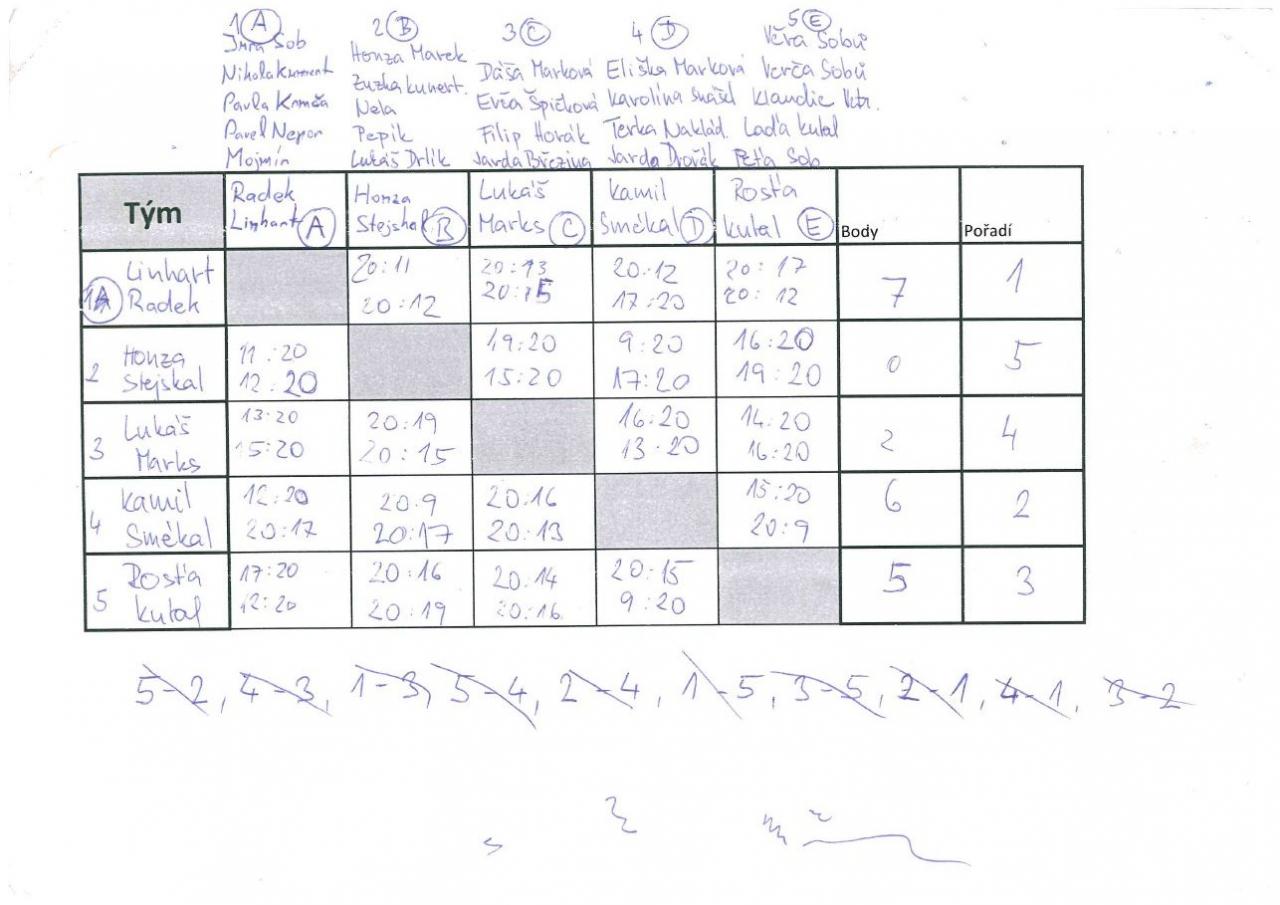 1 A
Jirra Sob
Nikola
Pavla
Pavel
Mojmín
2 B
Honza Marek
Zuzka kunert.
Nela
Pepik
Lukáš Drlik
3 C
Dáša Marková
Evča Špičková
Filip Horák
Jarda Březina
4 D
Eliška Marková
Karolína
Terka Naklád.
Jarda Dvořák
5 E
Věra Sobů
Verča Sobů
Klaudie
Laďa kutal
Peťa Sob
Tým
Radek
Linhart A
Honza
Stejskal B
Lukáš
Marks C
Kamil
Smékal D
Rosťa
kutal E
Body
Pořadí
Linhart
1A Radek
20:11
20:12
20:13
20:15
20:12
17:20
20:17
20:12
7
1
Honza
2 Stejskal
11:20
12:20
19:20
15:20
9:20
17:20
16:20
19:20
0
5
Lukáš
3 Marks
13:20
15:20
20:19
20:15
16:20
13:20
14:20
16:20
2
4
Kamil
4 Smékal
12:20
20:17
20:9
20:17
20:16
20:13
15:20
20:9
6
2
Rosťa
5 kutal
17:20
12:20
20:16
20:19
20:14
20:16
20:15
9:20
5
3
5-2, 4-3, 1-3, 5-4, 2-4, 1-5, 3-5, 2-1, 4-1, 3-2